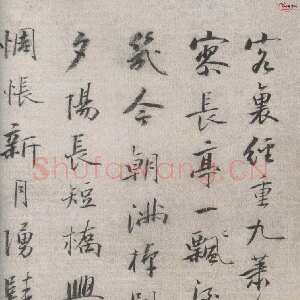 客裏經重九蕭
寥長亭一瓢
今朝
夕陽長短橋興
惆悵新月湧
ShufaWang.CN